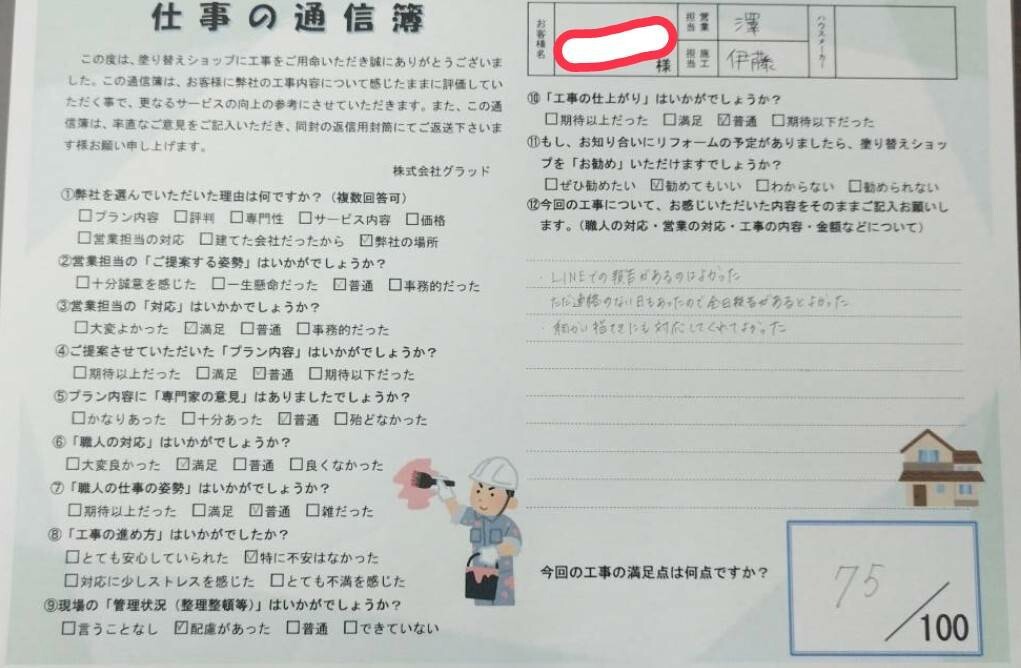 仕事の通信簿
この度は、塗り替えショップに工事をご用命いただき誠にありがとうございま
した。この通信簿は、お客様に弊社の工事内容について感じたままに評価してい
ただく事で、更なるサービスの向上の参考にさせていただきます。また、この通
信簿は、率直なご意見をご記入いただき、同封の返信用封筒にてご返送下さいま
す様お願い申し上げます。
株式会社グラッド
①弊社を選んでいただいた理由は何ですか？（複数回答可）
□プラン内容 □評判 □専門性 □サービス内容 □価格
□営業担当の対応 □建てた会社だったから ☑弊社の場所
②営業担当の「ご提案する姿勢」はいかがでしょうか？
□十分誠意を感じた □一生懸命だった ☑普通 □事務的だった
③営業担当の「対応」はいかかでしょうか？
□大変よかった ☑満足 □普通 □事務的だった
④ご提案させていただいた「プラン内容」はいかがでしょうか？
□期待以上だった □満足 ☑普通 □期待以下だった
⑤プラン内容に「専門家の意見」はありましたでしょうか？
□かなりあった □十分あった ☑普通 □殆どなかった
⑥「職人の対応」はいかがでしょうか？
□大変良かった ☑満足 □普通 □良くなかった
⑦「職人の仕事の姿勢」はいかがでしょうか？
□期待以上だった □満足 ☑普通 □雑だった
⑧「工事の進め方」はいかがでしたか？
□とても安心していられた ☑特に不安はなかった
□対応に少しストレスを感じた □とても不満を感じた
⑨現場の「管理状況（整理整頓等）」はいかがでしょうか？
□言うことなし ☑配慮があった □普通 □できていない
お客様名 様
営業担当 澤
施工担当 伊藤
ハウスメーカー
⑩「工事の仕上がり」はいかがでしょうか？
□期待以上だった □満足 ☑普通 □期待以下だった
⑪もし、お知り合いにリフォームの予定がありましたら、塗り替えショッ
プを「お勧め」いただけますでしょうか？
□ぜひ勧めたい ☑勧めてもいい □わからない □勧められない
⑫今回の工事について、お感じいただいた内容をそのままご記入お願いし
ます。（職人の対応・営業の対応・工事の内容・金額などについて）
・LINEでの報告があるのはよかった
ただ連絡のない日もあったので全日報告があるとよかった
・細かい指摘にも対応してくれてよかった
今回の工事の満足点は何点ですか？
75/100